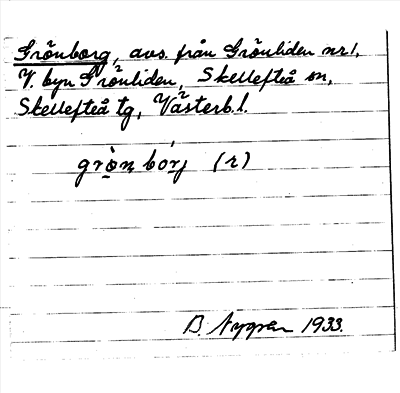 Grönborg, avs. från Grönliden nr 1,
V. byn Grönliden, Skellefteå sn,
Skellefteå tg, Västerb. l.
grò̱n bóṟj (r)
B. Nygren 1933.